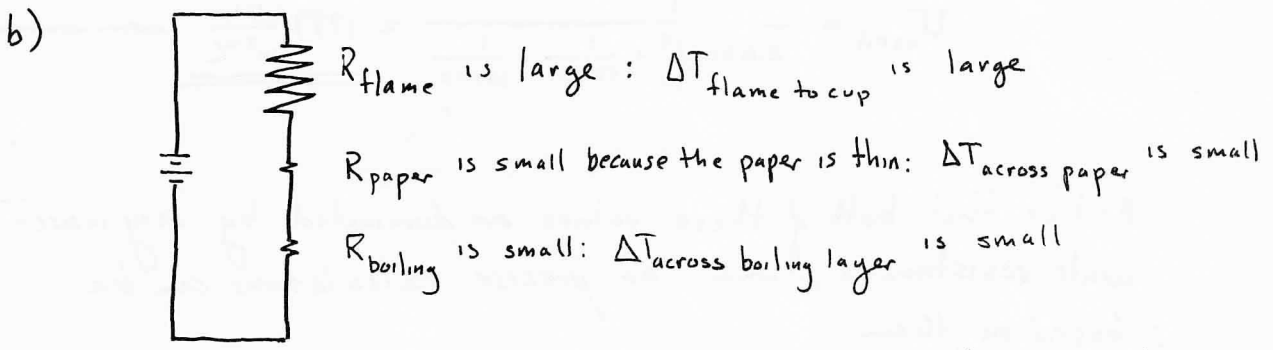 b)
R_flame is large : ΔT_flame to cup is large
R_paper is small because the paper is thin: ΔT_across paper is small
R_boiling is small: ΔT_across boiling layer is small